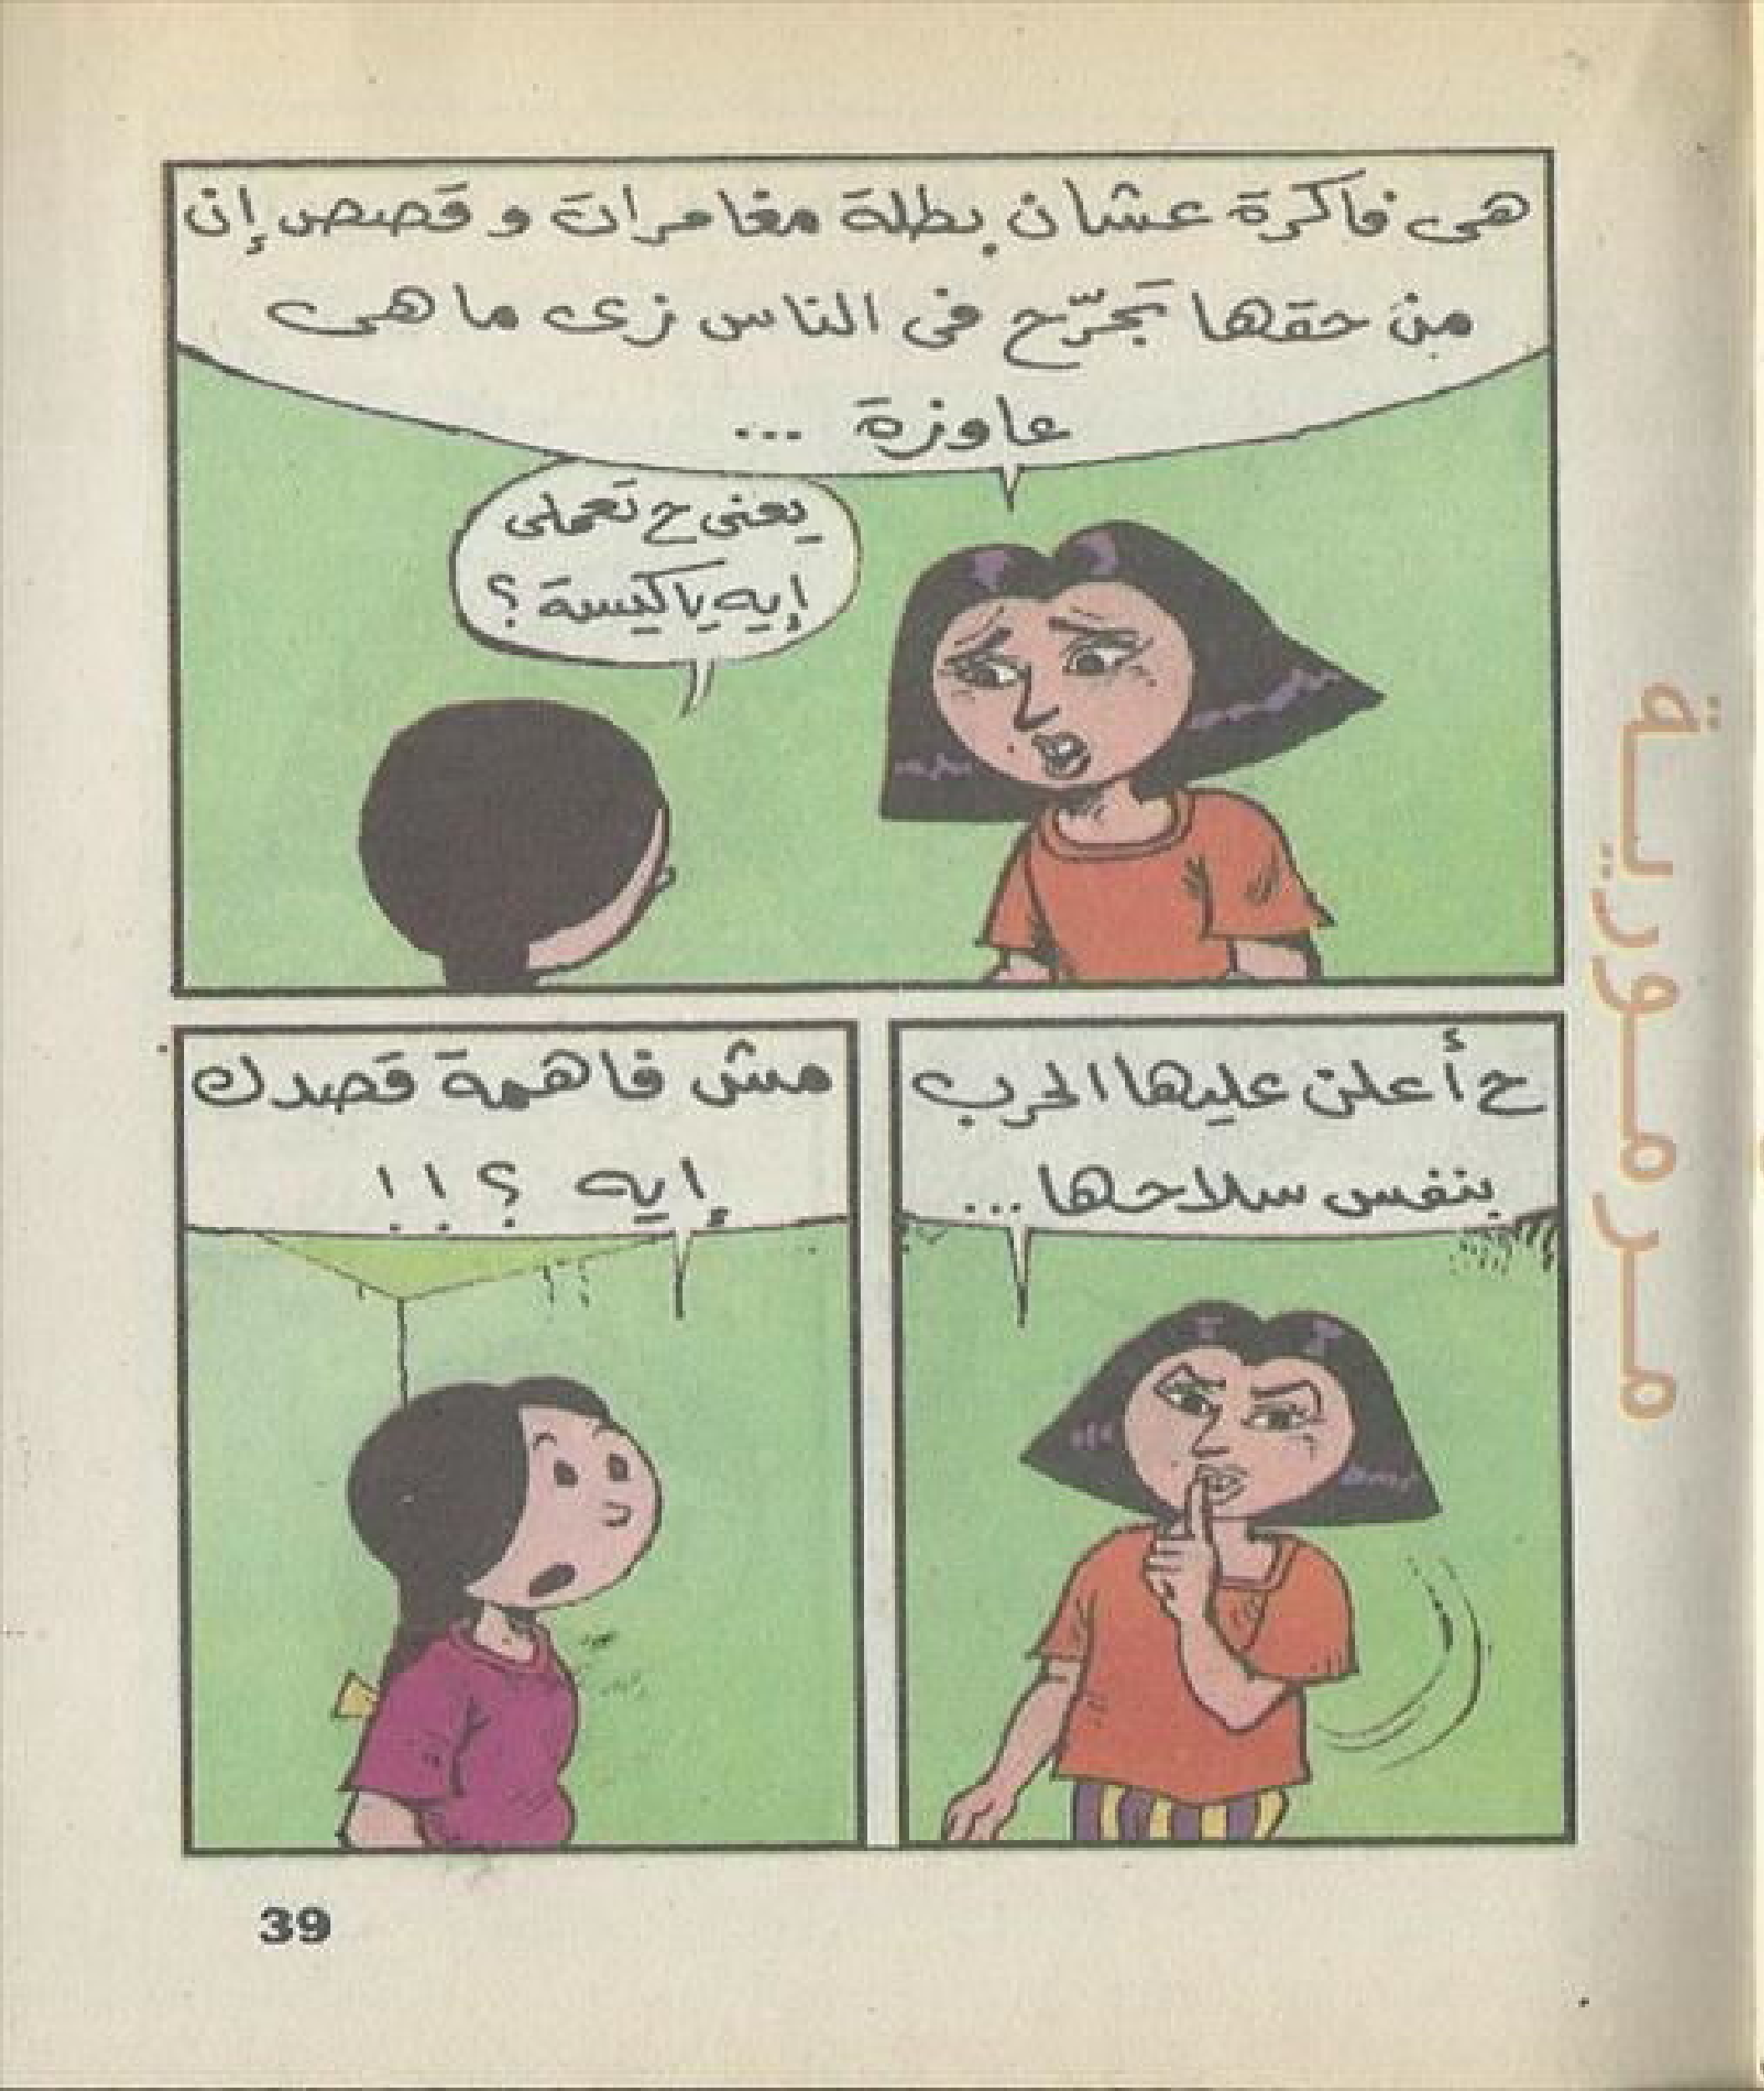 هى فاكرة عشان بطلة مغامرات و قصص إن
من حقها تجرّح فى الناس زى ما هى
عاوزة ...
يعنى ح تعملى
إيه ياكيسة ؟
ح أعلن عليها الحرب
بنفس سلاحها ...
مش فاهمة قصدك
إيه ؟!!
39
مرمورية